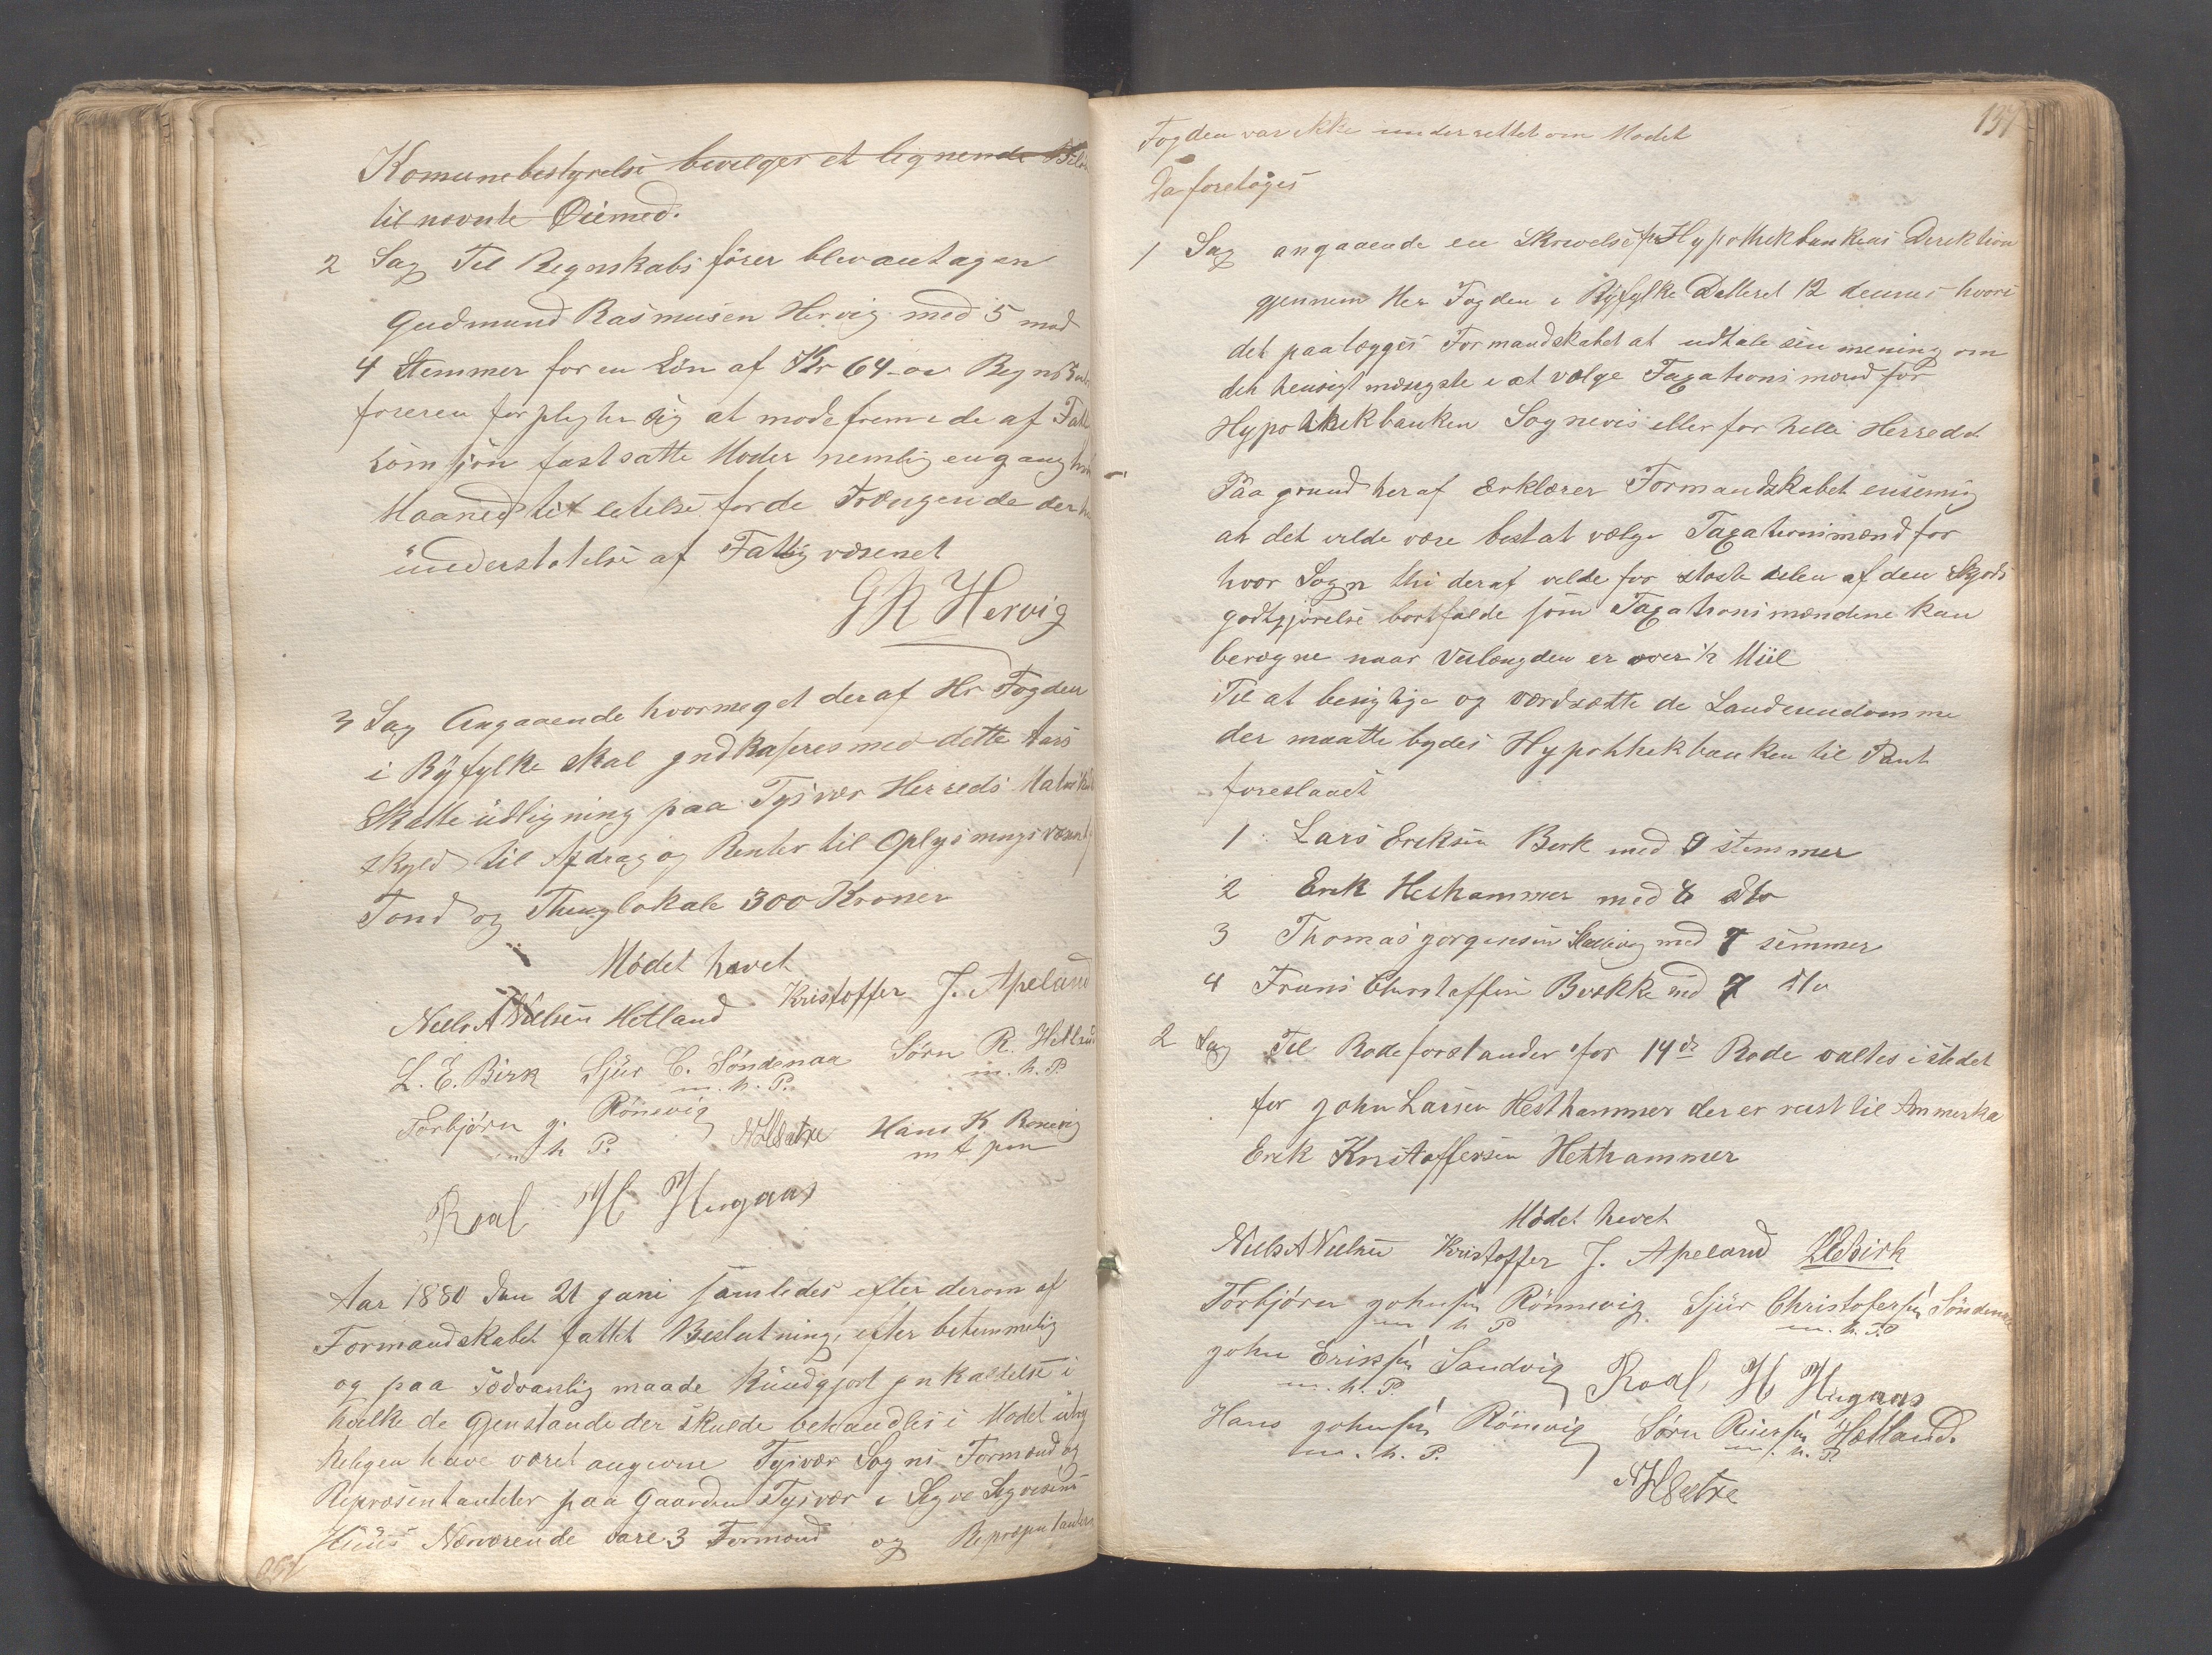 Komunebestyrelse bevelges et lignende
til nevnte Øiemed.
2 Sag Til Regnskabsfører blev antagen
Gudmund Rasmusen Hervig med 5 mod
4 Stemmer for en Løn af Kr 64 og Regnskabs
føreren forpligter sig at møde frem i de af Fatt
komsjon fastsatte Moder nemlig engang hver
Maaned til letelse for de Trængende der
understøtelse af Fattigvæsenet
G R Hervig
3 Sag Angaaende hvormeget der af Hr Fogden
i Ryfylke skal indkasseres med dette Aars
Skatteudligning paa Tysvær Herreds Matrikul
skyld til Afdrag og Renter til Oplysningsvæsenets
Fond og Thinglokale 300 Kroner
Mødet hævet
Niels A Nielsen Hetland Kristoffer J. Apeland
L. E. Birk Sjur C. Søndenaa Sørn R. Hetland
m. h. P. m. h. P.
Torbjørn J. Rönevig NHSætre Hans K Rønevig
m h P. m f pen
Roal H Hugaas
Aar 1880 den 21 Juni samledes efter derom af
Formandskabet fattet Beslutning, efter betimmelig
og paa sædvanlig maade kundgjort Jnkaldelse i
hvilke de Gjenstande der skulde behandles i Modet udtry
keligen have været angivne Tysvær Sogns Formænd og
Repræsentanter paa Gaarden Tysvær i Sigve Sigvesens
Huus Nærværende vare 3 Formænd og Repræsentanter
137
Fogden var ikke underrettet om Modet
Da foretoges
1 Sag angaaende en Skrivelse fr Hypothekbankens Direktion
gjennem Her Fogden i Ryfylke Datteret 12 dennes hvori
det paalægges Formandskabet at udtale sin mening om
det hensigtmæsigste i at vælge Taxationsmænd for
Hypothekbanken Sognevis eller for hele Herredet
Paa grund heraf erklærer Formandskabet ensemig
at det vilde være best at vælge Taxationsmænd for
hvor Sogn thi deraf vilde for støste delen af den Skyds
godtgjørelse bortfalde som Taxationsmændene kan
beregne naar Veilængden er over 1/2 Miil
Til at besigtige og værdsætte de Landeiendomme
der maatte bydes Hypothekbanken til Pant
foreslaaet
1 Lars Eriksen Birk med 9 stemmer
2 Erik Hesthammer med 8 dto
3 Thomas Jørgensen med 7 semmer
4 Frans Christoffersen Bække med 7 dto
2 Sag Til Rodeforstander for 14de Rode valtes istedet
for John Larsen Hesthammer der er reist til Ammerka
Erik Kristoffersen Hesthammer
Mødet hevet
Niels A Nielsen Kristoffer J. Apeland LEBirk
Torbjörn Johnsen Rönnevig Sjur Christofersen Söndenaa
m h P m. h. P
John Eriksen Sandvig Roal H Hugaas
m. h. P.
Hans Johnsen Rönevig Sørn Reiersen Hætland.
m. h. P. m. h. P
NHSætre